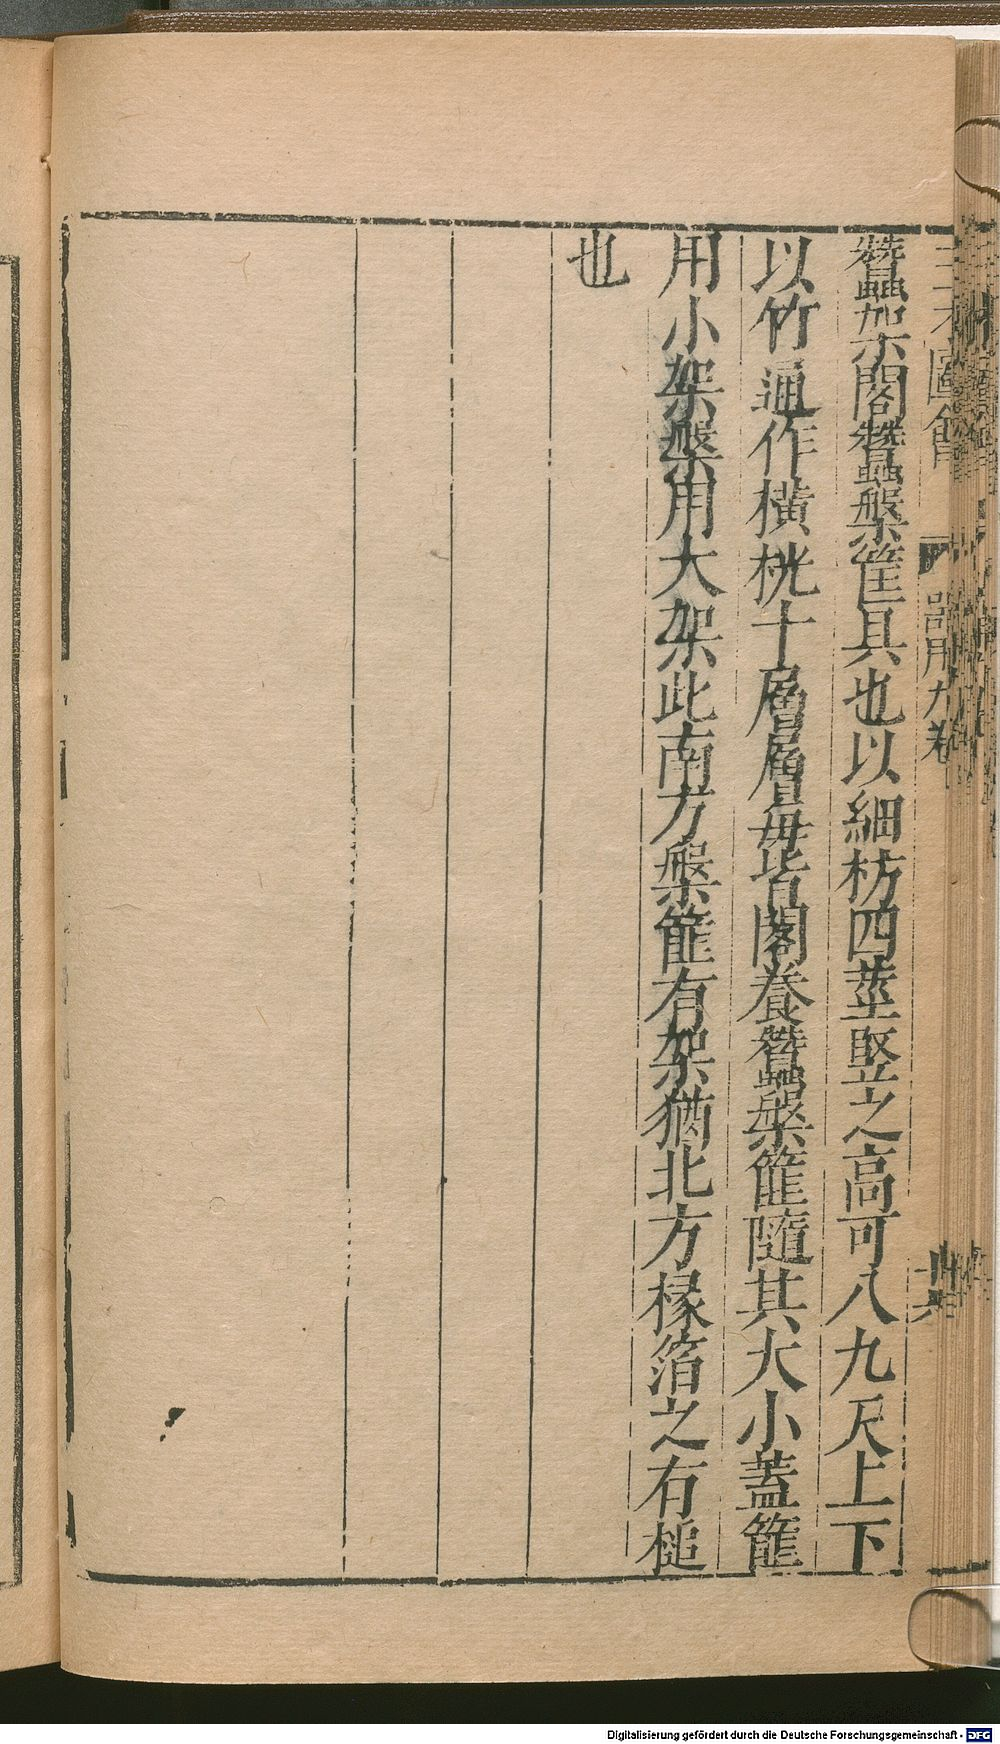 三才圖會
器用九卷
蠶架閣蠶槃筐具也以細枋四莖竪之高可八九尺上下
以竹通作橫桄十層層毎皆閣養蠶槃篚隨其大小蓋篚
用小架槃用大架此南方槃篚有架猶北方椽箔之有槌
也
Digitalisierung gefördert durch die Deutsche Forschungsgemeinschaft - DFG